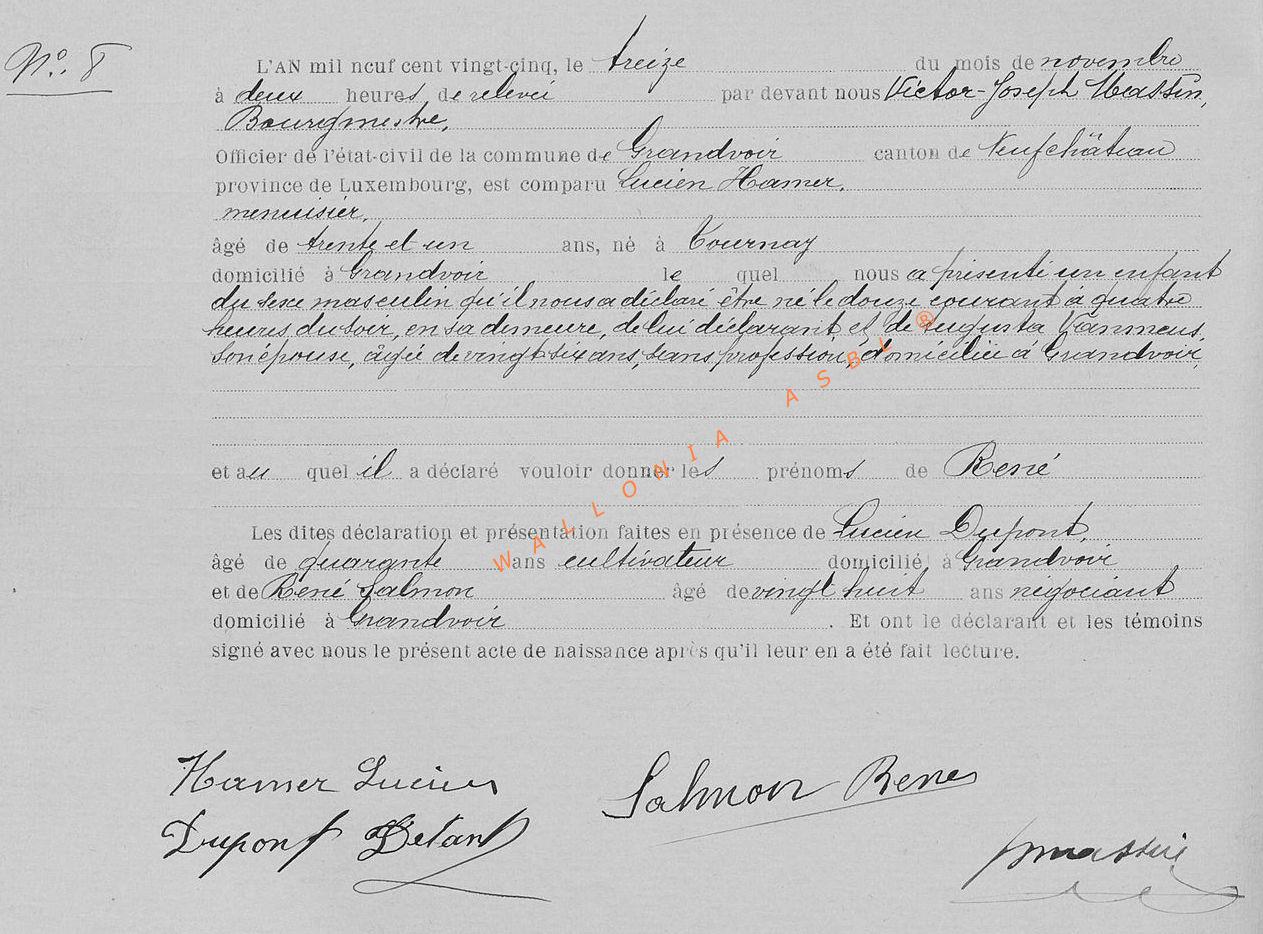 N°. 8
L'AN mil neuf cent vingt-cinq, le treize du mois de novembre
à deux heures de relevée par devant nous Victor-Joseph Massin,
Bourgmestre,
Officier de l'état-civil de la commune de Grandvoir canton de Neufchâteau
province de Luxembourg, est comparu Lucien Hamer,
menuisier,
âgé de trente et un ans, né à Tournay
domicilié à Grandvoir le quel nous a présenté un enfant
du sexe masculin qu'il nous a déclaré être né le douze courant à quatre
heures du soir, en sa demeure, de lui déclarant et de Augusta Vanmeus,
son épouse, âgée de vingt-six ans, sans profession, domiciliée à Grandvoir,
et au quel il a déclaré vouloir donner les prénoms de René
Les dites déclaration et présentation faites en présence de Lucien Dupont,
âgé de quarante ans cultivateur domicilié à Grandvoir
et de René Salmon âgé de vingt huit ans négociant
domicilié à Grandvoir. Et ont le déclarant et les témoins
signé avec nous le présent acte de naissance après qu'il leur en a été fait lecture.
Hamer Lucien
Salmon René
Dupont
Massin
WALLONIA ASBL ®